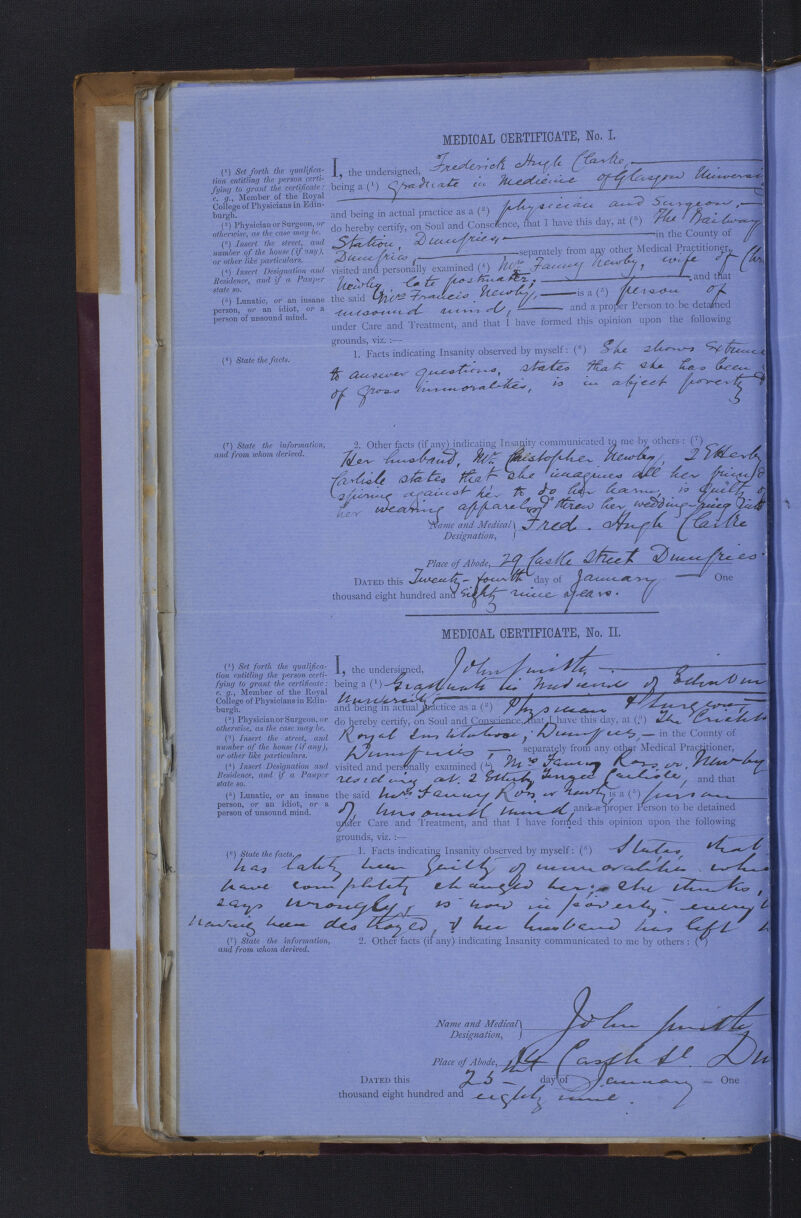 MEDICAL CERTIFICATE, No. I.
(1) Set forth the qualifica-
tion entitling the person certi-
fying to grant the certificate:
e. g., Member of the Royal
College of Physicians in Edin-
burgh.
(2) Physician or Surgeon, or
otherwise, as the case may be.
(3) Insert the street, and
number of the house (if any),
or other like particulars.
(4) Insert Designation and
Residence, and if a Pauper
state so.
(5) Lunatic, or an insane
person, or an idiot, or a
person of unsound mind.
I, the undersigned, Frederick Hugh Clarke,
being a (1) Graduate in Medicine of Glasgow Universi
and being in actual practice as a (2) physician and Surgeon,
do hereby certify, on Soul and Conscience, that I have this day, at (3) The Railway
Station, Dumfries, in the County of
Dumfries, separately from any other Medical Practitioner,
visited and personally examined (4) Mrs Fanny Newby, wife of Chr
Newby, late postmaster, and that
the said Mrs Francis Newby, is a (5) person of
unsound mind, and a proper Person to be detained
under Care and Treatment, and that I have formed this opinion upon the following
grounds, viz. :—
(6) State the facts.
1. Facts indicating Insanity observed by myself: (6) She shows extreme
to answer questions, states that she has been
of gross immoralities, is in abject poverty &
(7) State the information,
and from whom derived.
2. Other facts (if any) indicating Insanity communicated to me by others: (7)
Her husband, Mr Christopher Newby, 2 Etterby
Carlisle states that she imagines all her friend
spiring against her to do her harm, is guilty of
her wearing apparel, threw her wedding ring into
Name and Medical
Designation,
Fred. Hugh Clarke
Place of Abode, 29 Castle Street Dumfries
DATED this Twenty-fourth day of January One
thousand eight hundred and Eighty nine years.
MEDICAL CERTIFICATE, No. II.
(1) Set forth the qualifica-
tion entitling the person certi-
fying to grant the certificate:
e. g., Member of the Royal
College of Physicians in Edin-
burgh.
(2) Physician or Surgeon, or
otherwise, as the case may be.
(3) Insert the street, and
number of the house (if any),
or other like particulars.
(4) Insert Designation and
Residence, and if a Pauper
state so.
(5) Lunatic, or an insane
person, or an idiot, or a
person of unsound mind.
I, the undersigned, John Smith,
being a (1) Graduate in Medicine of Edinbur
University
and being in actual practice as a (2) Physician & Surgeon
do hereby certify, on Soul and Conscience, that I have this day, at (3) The Crichton
Royal Institution, Dumfries in the County of
Dumfries separately from any other Medical Practitioner,
visited and personally examined (4) Mrs Fanny Ross or Newby
residing at 2 Etterby Carlisle, and that
the said Mrs Fanny Ross or Newby is a (5) person
of unsound mind, and a proper Person to be detained
under Care and Treatment, and that I have formed this opinion upon the following
grounds, viz. :—
(6) State the facts.
1. Facts indicating Insanity observed by myself: (6) States that
has lately been guilty of immoralities whi
have completely changed her; she thinks,
says wrongly, is now in poverty, every
having been destroyed, & her husband has left h
(7) State the information,
and from whom derived.
2. Other facts (if any) indicating Insanity communicated to me by others: (7)
Name and Medical
Designation,
John Smith
Place of Abode, Castle St. Du
DATED this 25 day of January One
thousand eight hundred and eighty nine.